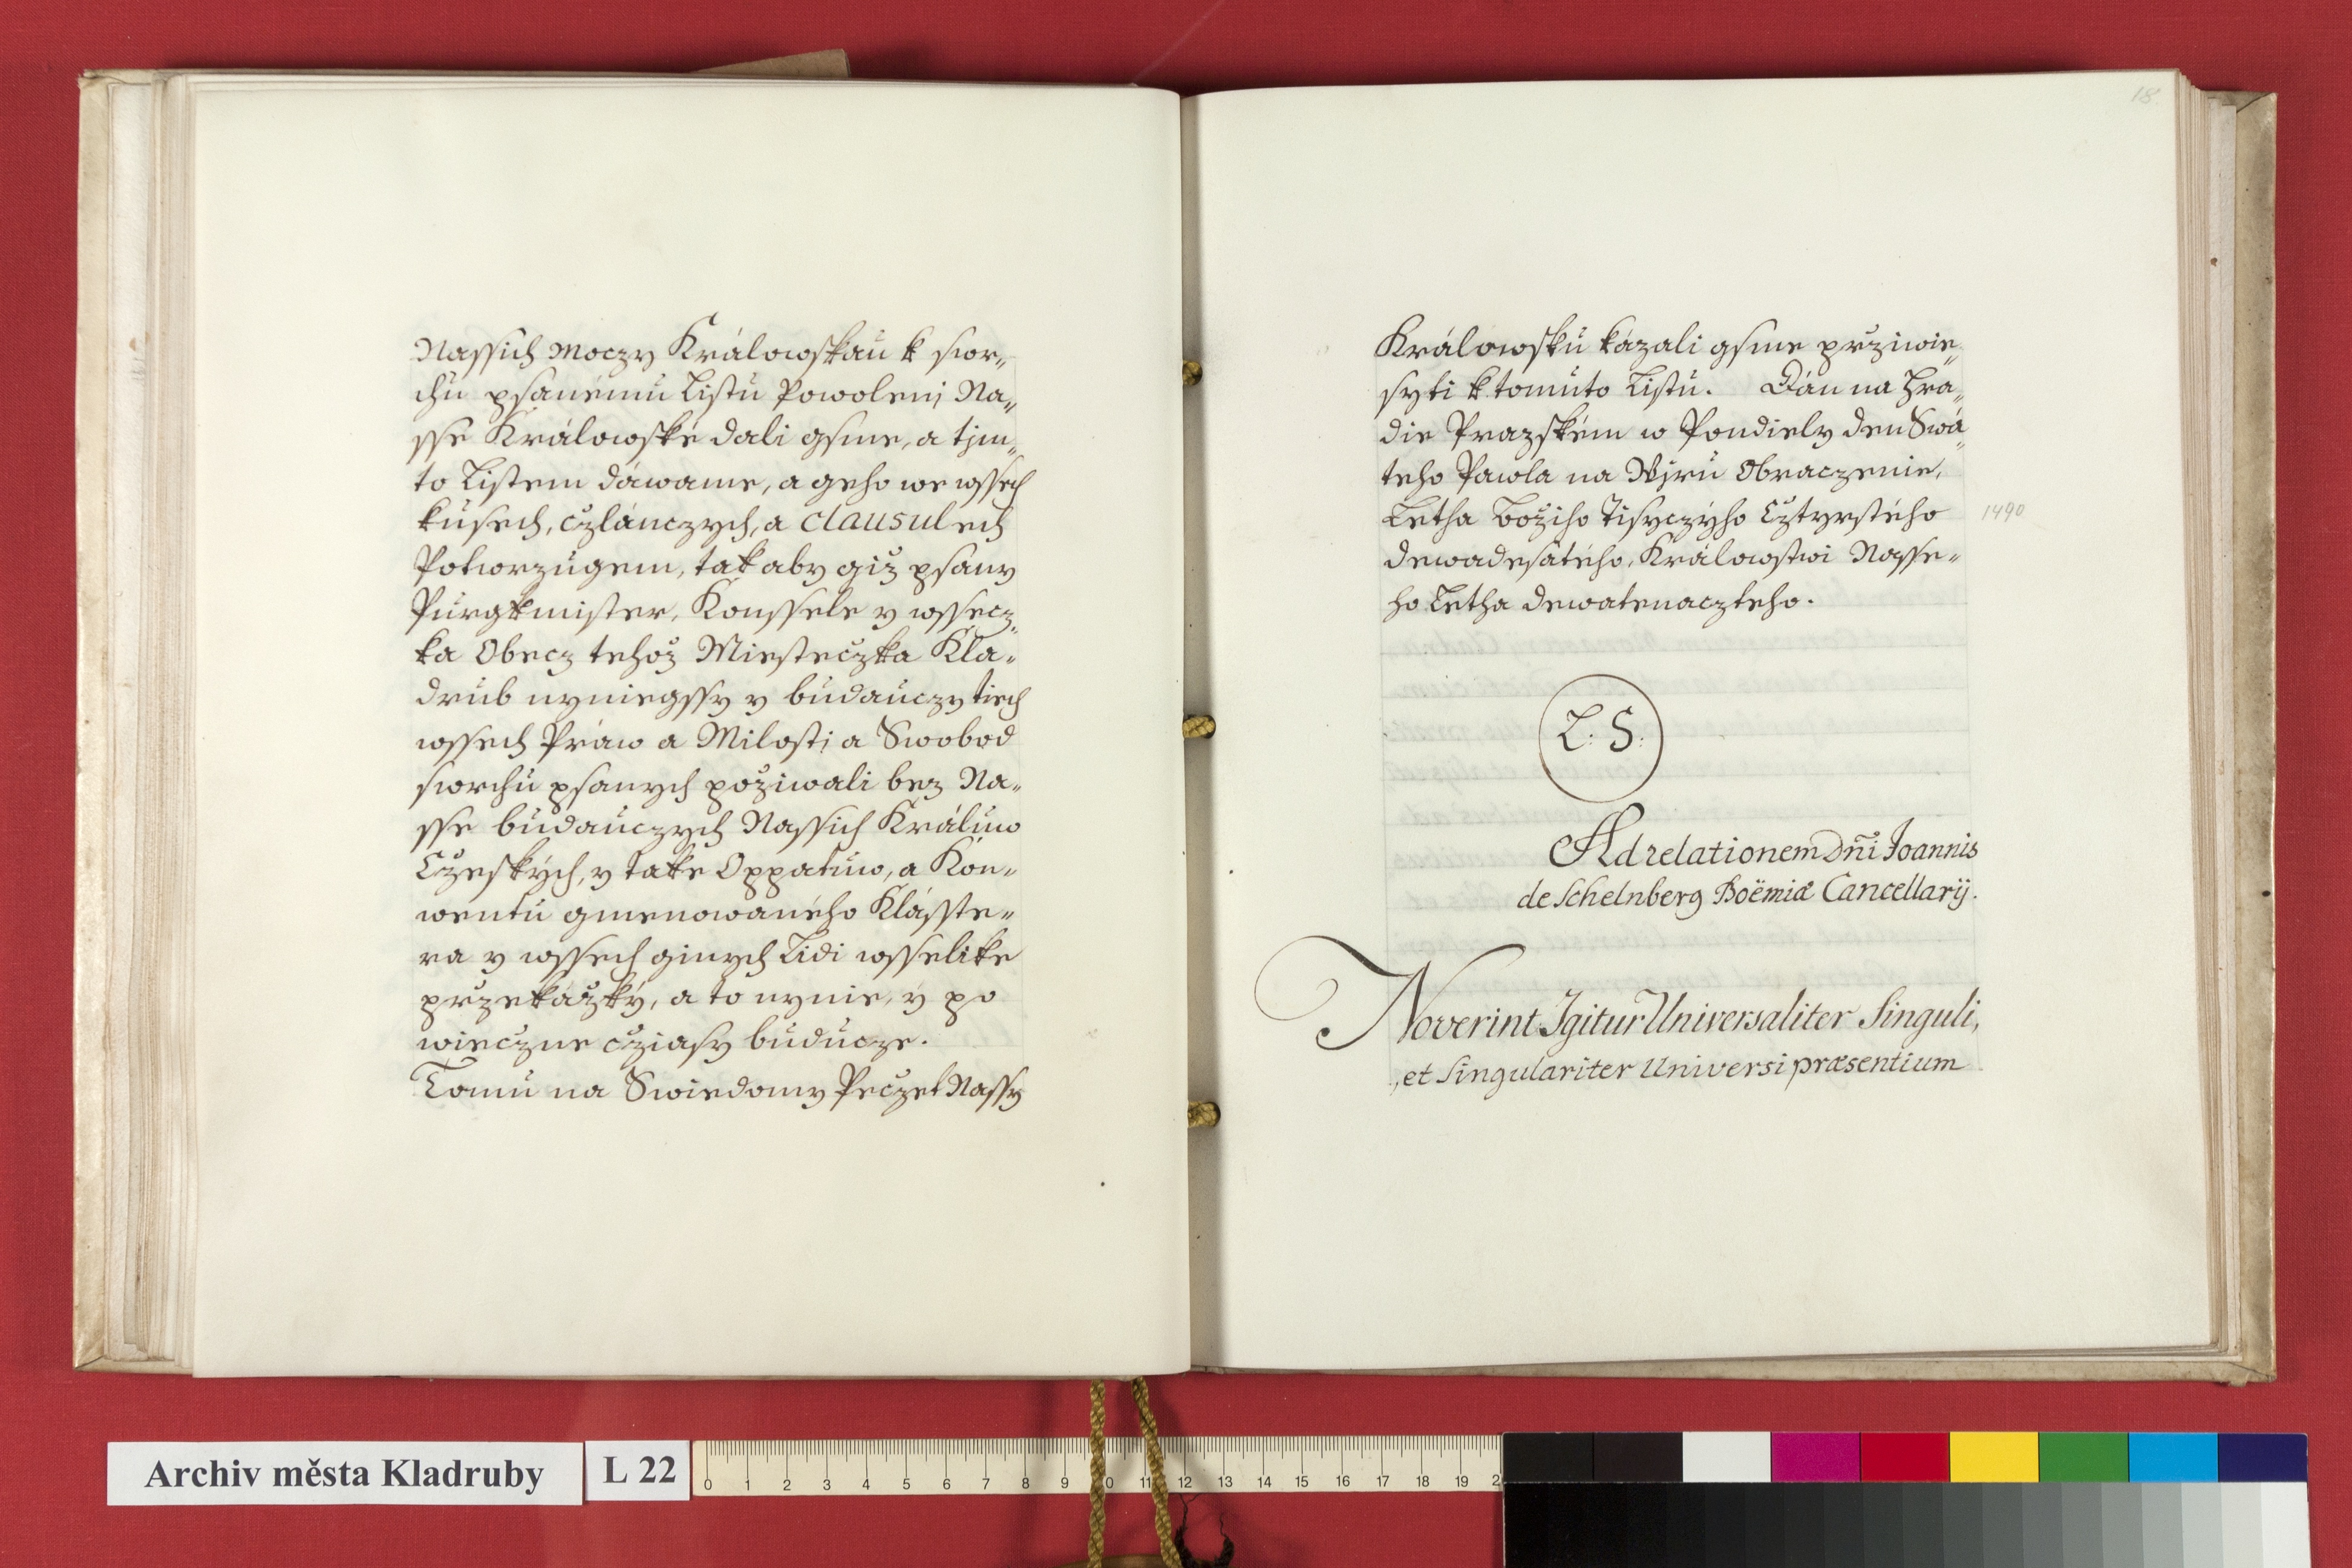 Nassich Moczy Králowskaů k swr„
chů psanémů Listů Powolenj Na„
sse Králowské dali gsme, a tjm„
to Listem dáwame, a geho we wssech
kůsech, Czlánczych, a Clausulech
Potwrzůgem, tak aby giž psany
Půrgkmister, Konssele y wssecz„
ka Obecz tehož Miesteczka Kla„
drůb nyniegssy y bůdaůczy tiech
wssech Práw a Milostj a Swobod
swrchů psanych požiwali bez Na„
sse bůdaůczych Nassich Králůw
Czeských, y také Oppatůw, a Kon„
wentů gmenowaného Klásste„
ra y wssech ginych Lidi wsselike
przekážky, a to nynie, y po
wieczne cziasy bůdůcze.
Tomů na Swiedomy Peczet Nassy
18
Králowsků kázali gsme prziwie„
syti k tomůto Listů. Dán na Hra„
die Prazském w Pondiely den Swá„
teho Pawla na Wjrů Obraczenie,
Letha Božiho Tisyczýho Cztyrstého
dewadesátého, Králowstwi Nasse„
ho Letha dewatenaczteho.
1490
L. S.
Ad relationem Dñi Joannis
de Schelnberg Boëmiæ Cancellarij.
Noverint Igitur Universaliter Singuli,
et Singulariter Universi præsentium
Archiv města Kladruby
L 22
0 1 2 3 4 5 6 7 8 9 0 11 12 13 14 15 16 17 18 19 2